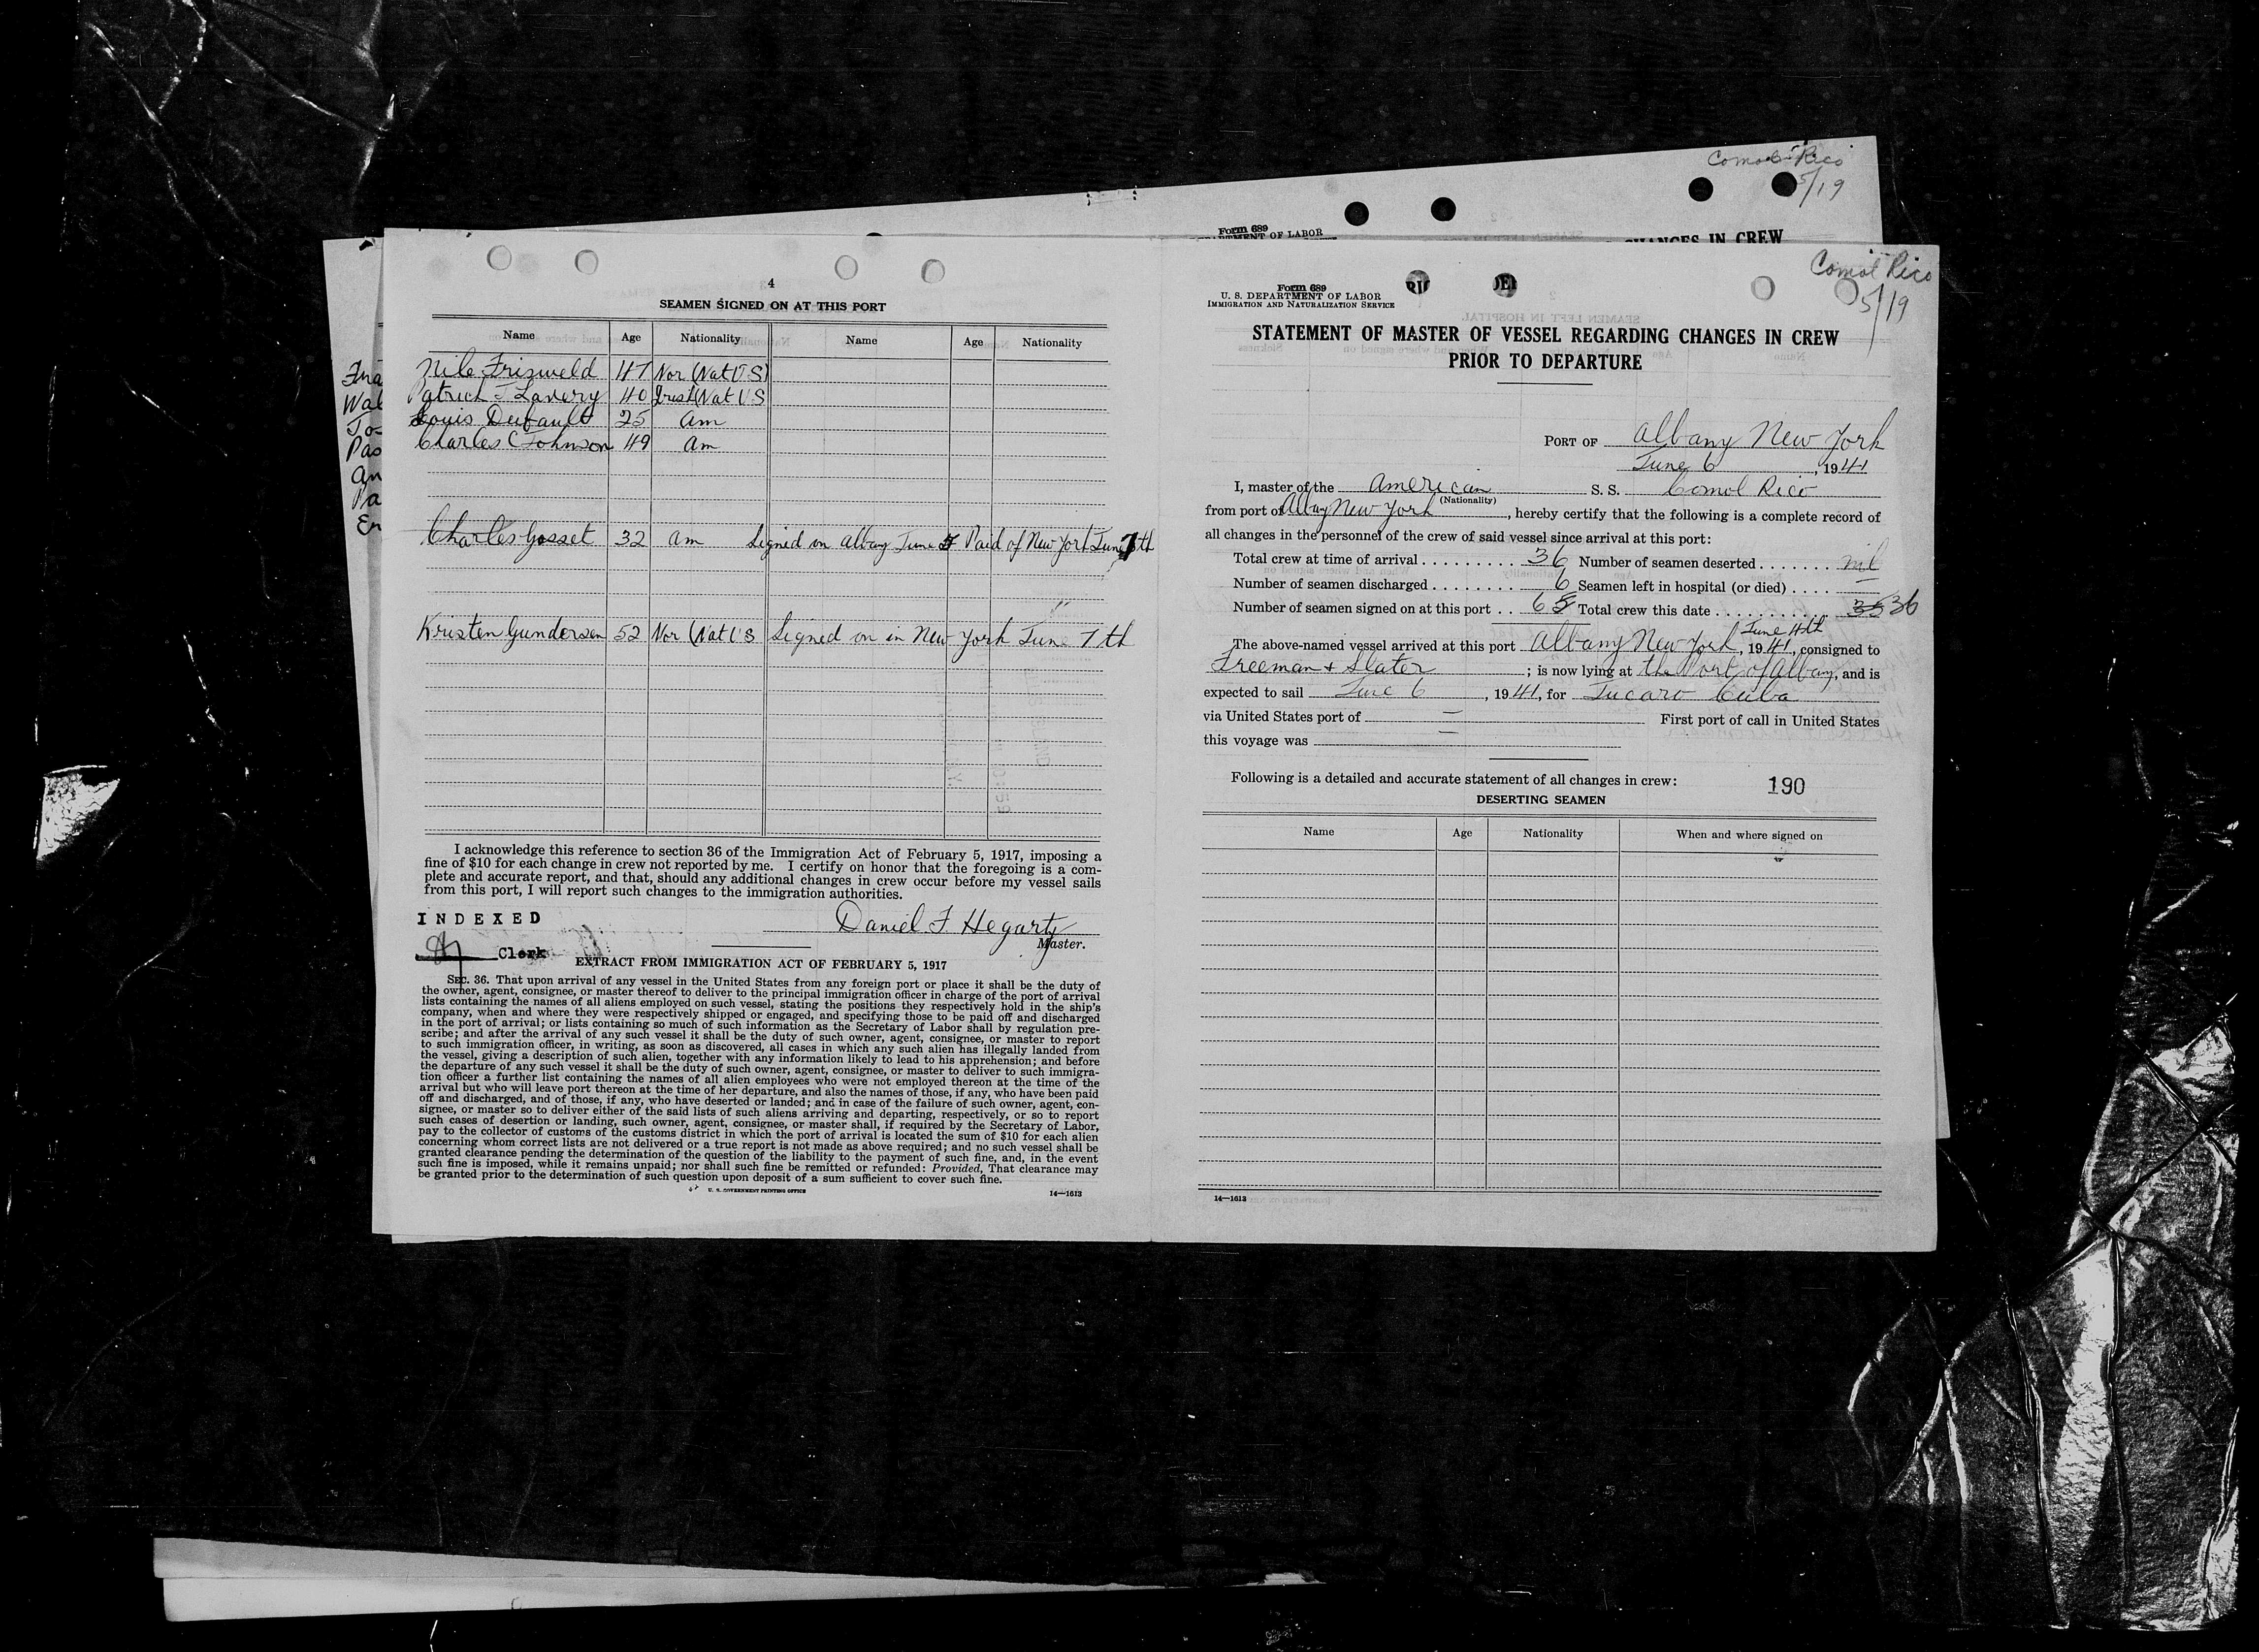 Comol Rico
5/19
Form 689
DEPARTMENT OF LABOR
CHANGES IN CREW
4
SEAMEN SIGNED ON AT THIS PORT
Name Age Nationality Name Age Nationality
Nils Frisweld 47 Nor (Nat U S)
Patrick J Lavery 40 Irish (Nat U S
Louis Dubault 25 am
Charles C Johnson 49 am
Charles Gosset 32 am Signed on Albay June 5 Paid of New York June 7th
Kristen Gundersen 52 Nor (Nat U S Signed on in New York June 7th
I acknowledge this reference to section 36 of the Immigration Act of February 5, 1917, imposing a
fine of $10 for each change in crew not reported by me. I certify on honor that the foregoing is a com-
plete and accurate report, and that, should any additional changes in crew occur before my vessel sails
from this port, I will report such changes to the immigration authorities.
INDEXED
Daniel F Hegarty
Master.
Clerk
EXTRACT FROM IMMIGRATION ACT OF FEBRUARY 5, 1917
SEC. 36. That upon arrival of any vessel in the United States from any foreign port or place it shall be the duty of
the owner, agent, consignee, or master thereof to deliver to the principal immigration officer in charge of the port of arrival
lists containing the names of all aliens employed on such vessel, stating the positions they respectively hold in the ship's
company, when and where they were respectively shipped or engaged, and specifying those to be paid off and discharged
in the port of arrival; or lists containing so much of such information as the Secretary of Labor shall by regulation pre-
scribe; and after the arrival of any such vessel it shall be the duty of such owner, agent, consignee, or master to report
to such immigration officer, in writing, as soon as discovered, all cases in which any such alien has illegally landed from
the vessel, giving a description of such alien, together with any information likely to lead to his apprehension; and before
the departure of any such vessel it shall be the duty of such owner, agent, consignee, or master to deliver to such immigra-
tion officer a further list containing the names of all alien employees who were not employed thereon at the time of the
arrival but who will leave port thereon at the time of her departure, and also the names of those, if any, who have been paid
off and discharged, and of those, if any, who have deserted or landed; and in case of the failure of such owner, agent, con-
signee, or master so to deliver either of the said lists of such aliens arriving and departing, respectively, or so to report
such cases of desertion or landing, such owner, agent, consignee, or master shall, if required by the Secretary of Labor,
pay to the collector of customs of the customs district in which the port of arrival is located the sum of $10 for each alien
concerning whom correct lists are not delivered or a true report is not made as above required; and no such vessel shall be
granted clearance pending the determination of the question of the liability to the payment of such fine, and, in the event
such fine is imposed, while it remains unpaid; nor shall such fine be remitted or refunded: Provided, That clearance may
be granted prior to the determination of such question upon deposit of a sum sufficient to cover such fine.
U. S. GOVERNMENT PRINTING OFFICE 14—1613
Comol Rico
5/19
Form 689
U. S. DEPARTMENT OF LABOR
IMMIGRATION AND NATURALIZATION SERVICE
STATEMENT OF MASTER OF VESSEL REGARDING CHANGES IN CREW
PRIOR TO DEPARTURE
PORT OF Albany New York
June 6, 1941
I, master of the American S. S. Comol Rico
(Nationality)
from port of Albay New York, hereby certify that the following is a complete record of
all changes in the personnel of the crew of said vessel since arrival at this port:
Total crew at time of arrival 36 Number of seamen deserted nil
Number of seamen discharged 6 Seamen left in hospital (or died) —
Number of seamen signed on at this port 6 5 Total crew this date 35 36
The above-named vessel arrived at this port Albany New York, June 4th 1941, consigned to
Freeman + Slater; is now lying at the Port of Albany, and is
expected to sail June 6, 1941, for Jucaro Cuba
via United States port of — First port of call in United States
this voyage was —
Following is a detailed and accurate statement of all changes in crew: 190
DESERTING SEAMEN
Name Age Nationality When and where signed on
14—1613